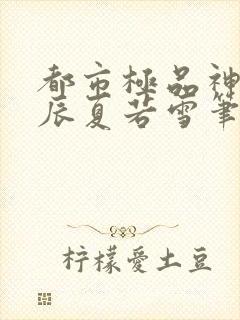 都市極品神
辰夏若雪筆
柠檬愛土豆